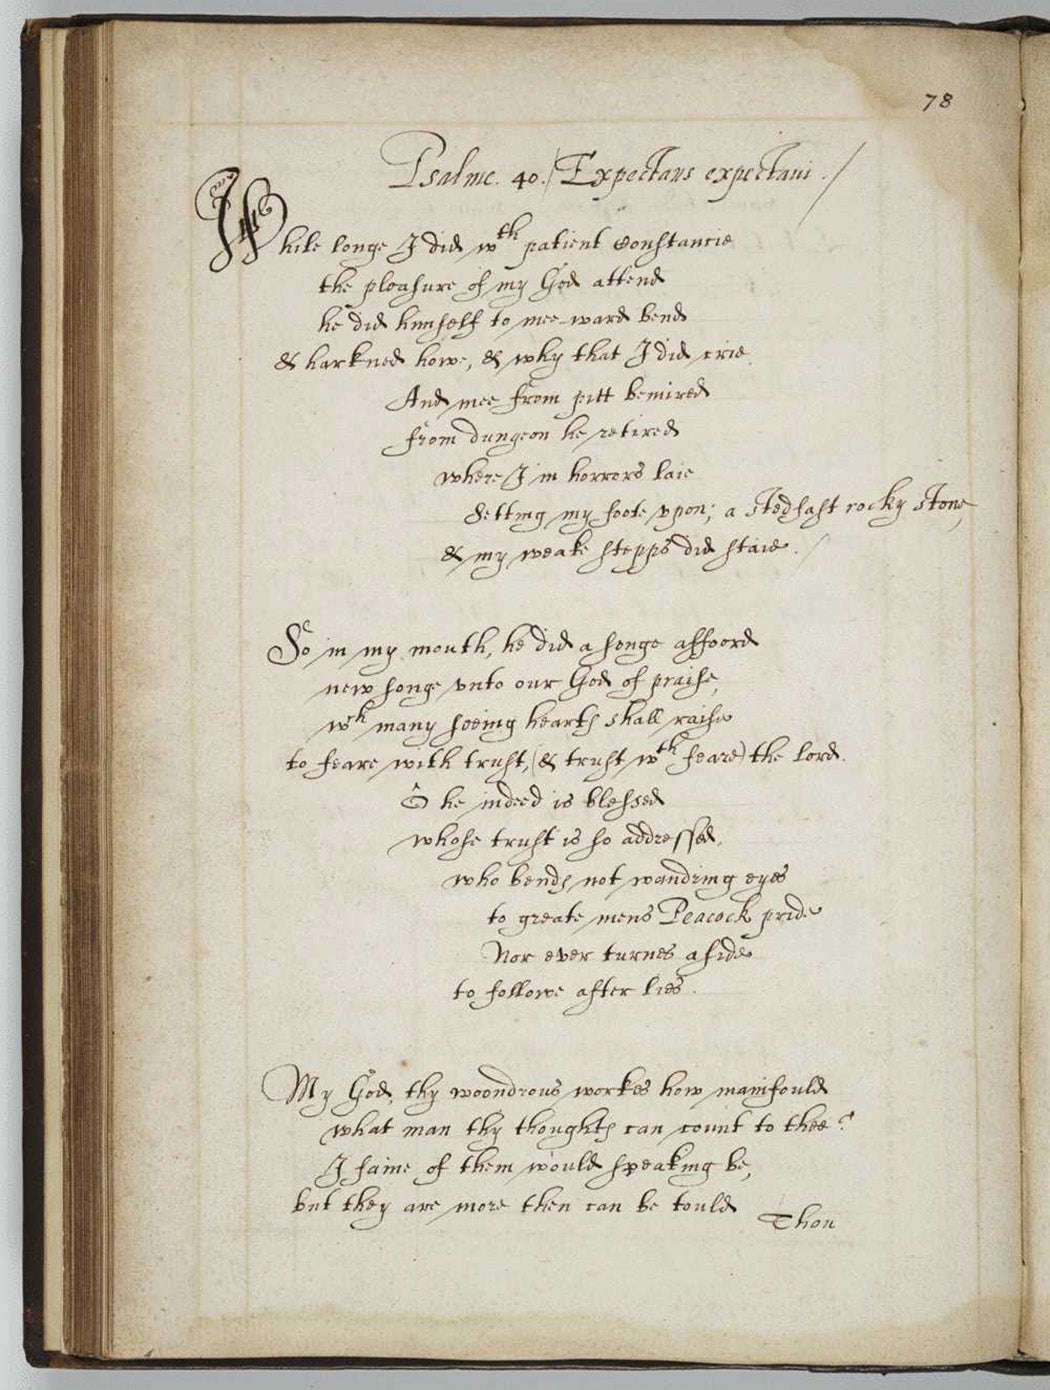 78
Psalme. 40. Expectans expectaui ./
While longe I did wth patient Constancie
the pleasure of my God attend
he did himself to mee-ward bend
& harkned howe, & why that I did crie.
And mee from pitt bemired
from dungeon he retired
where I in horrors laie
Setting my foote vpon; a stedfast rocky stone,
& my weake stepps did staie ./
So in my mouth, he did a songe affoord
new songe vnto our God of praise,
wch many seeing hearts shall raise
to feare with trust, (& trust wth feare) the lord.
Ô he indeed is blessed
whose trust is so addressed,
who bends not wandring eyes
to greate mens Peacock pride
Nor ever turnes aside
to followe after lies .
My God, thy woondrous workes how manifould
what man thy thoughts can count to thee?
I faine of them would speaking be,
but they are more then can be tould
Thou